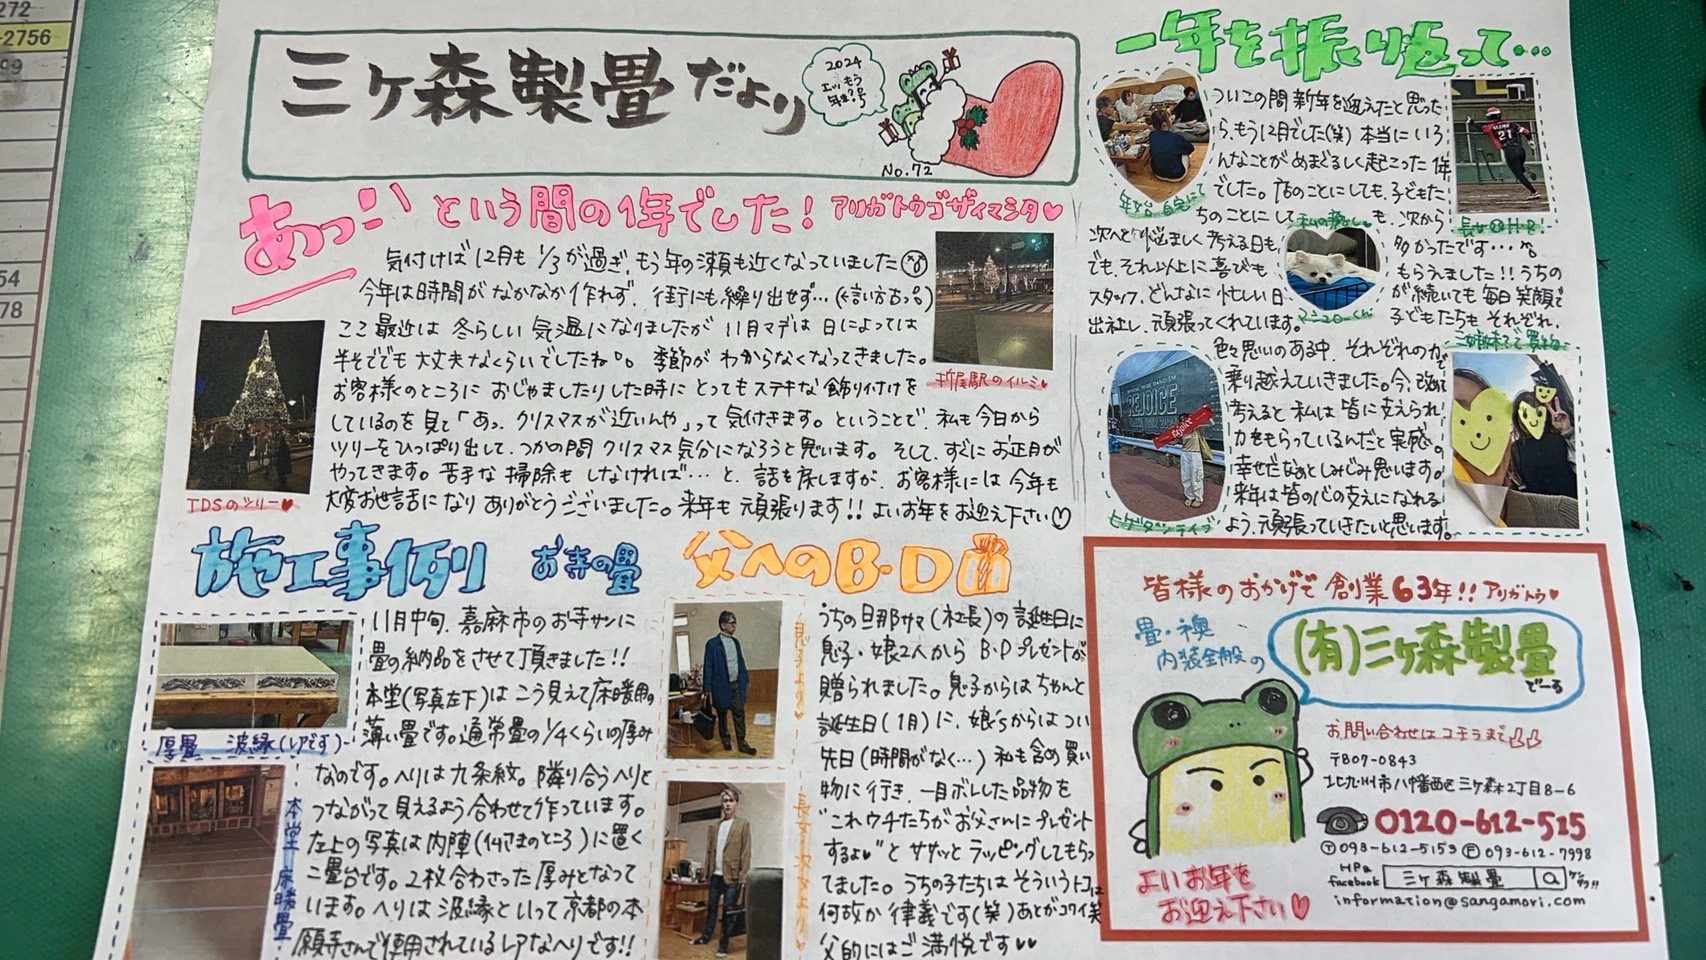 272
-2756
99
54
78
三ケ森製畳だより
2024
もう
エッ?号
年末?!
No.72
あっという間の1年でした! アリガトウゴザイマシタ♥
気付けば12月も1/3が過ぎ、もう年の瀬も近くなっていました
今年は時間がなかなか作れず、街にも繰り出せず…(←言い方古っ。)
ここ最近は冬らしい気温になりましたが11月マデは日によっては
半そででも大丈夫なくらいでしたね。。季節がわからなくなってきました。
お客様のところにおじゃましたりした時にとってもステキな飾り付けを
しているのを見て「あっ、クリスマスが近いんや」って気付きます。ということで、私も今日から
ツリーをひっぱり出して、つかの間クリスマス気分になろうと思います。そして、すぐにお正月が
やってきます。苦手な掃除もしなければ…と、話を戻しますが、お客様には今年も
大変お世話になりありがとうございました。来年も頑張ります!!よいお年をお迎え下さい♡
折尾駅のイルミ♥
TDSのツリー♥
一年を振り返って…
ついこの間新年を迎えたと思った
ら、もう12月でした(笑)本当にいろ
んなことがめまぐるしく起こった1年
でした。店のことにしても、子どもた
ちのことにしても、次から
次へと悩ましく考える日も多かったです…
でも、それ以上に喜びももらえました!!うちの
スタッフ、どんなに忙しい日が続いても毎日笑顔で
出社し、頑張ってくれています。子どもたちもそれぞれ、
色々思いのある中、それぞれの力で
乗り越えていきました。今、改めて
考えると私は皆に支えられ!
力をもらっているんだと実感。
幸せだなぁとしみじみ思います。
来年は皆の心の支えになれる
よう、頑張っていきたいと思います。
年始 自宅にて
長女 H.R!
私の癒し♥
マシローくん
REJOICE
Rejoice
ヒゲダンライブ
姉妹で買い物
施工事例 お寺の畳
11月中旬、嘉麻市のお寺サンに
畳の納品をさせて頂きました!!
本堂(写真左下)はこう見えて床暖用の
薄い畳です。通常畳の1/4くらいの厚み
なのです。ヘリは九条紋。隣り合うヘリと
つながって見えるよう合わせて作っています。
左上の写真は内陣(仏さまのところ)に置く
二畳台です。2枚合わさった厚みとなって
います。ヘリは波縁といって京都の本
願寺さんで使用されているレアなヘリです!!
厚畳 波縁(レアです)
本堂 床暖畳
父へのB・D
うちの旦那サマ(社長)の誕生日に
息子・娘2人からB・Dプレゼントが
贈られました。息子からはちゃんと
誕生日(1月)に、娘'sからはつい
先日(時間がなく…)私も含め買い
物に行き、一目ボレした品物を
"これウチたちがお父さんにプレゼント
するよ♥"とササッとラッピングしてもらっ
てました。うちの子たちはそういうトコは
何故か律義です(笑)あとがコワイ笑
父的にはご満悦です♥♥
息子より♡
長女・次女より♡
皆様のおかげで創業63年!!アリガトウ♥
畳・襖
内装全般の
(有)三ケ森製畳
でーす
お問い合わせはコチラまで
〒807-0843
北九州市八幡西区三ケ森2丁目8-6
0120-612-515
Ⓣ093-612-5153 Ⓕ093-612-7998
HP&
facebook 三ケ森製畳
information@sangamori.com
よいお年を
お迎え下さい♡